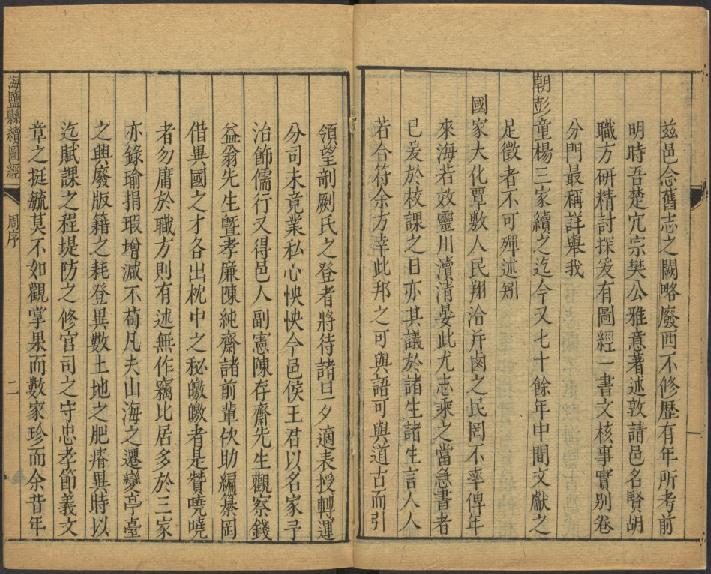 茲邑念舊志之闕略廢而不修歷有年所考前
明時吾楚宂宗樊公雅意著述敦請邑名賢胡
職方研精討探爰有圖經一書文核事實別卷
分門最稱詳舉我
朝彭童楊三家續之迄今又七十餘年中間文獻之
足徵者不可殫述矧
國家大化覃敷人民翔洽斥鹵之民罔不率俾年
來海若效靈川瀆清晏此尤志乘之當急書者
已爰於校課之日亦其議於諸生諸生言人人
若合符余方幸此邦之可與語可與道古而引
領望剞劂氏之登者將待諸旦夕適表授轉運
分司未竟業私心怏怏今邑侯王君以名家子
治飾儒行又得邑人副憲陳存齋先生觀察錢
益翁先生暨孝廉陳純齋諸前輩佽助編纂罔
借異國之才各出枕中之秘皦皦者是贊嘵嘵
者勿庸於職方則有述無作竊比居多於三家
亦錄瑜捐瑕增減不苟凡夫山海之遷變亭臺
之興廢版籍之耗登異數土地之肥瘠異時以
迄賦課之程堤防之修官司之守忠孝節義文
章之挺毓莫不如觀掌果而數家珍而余昔年
海鹽縣續圖經
周序
二